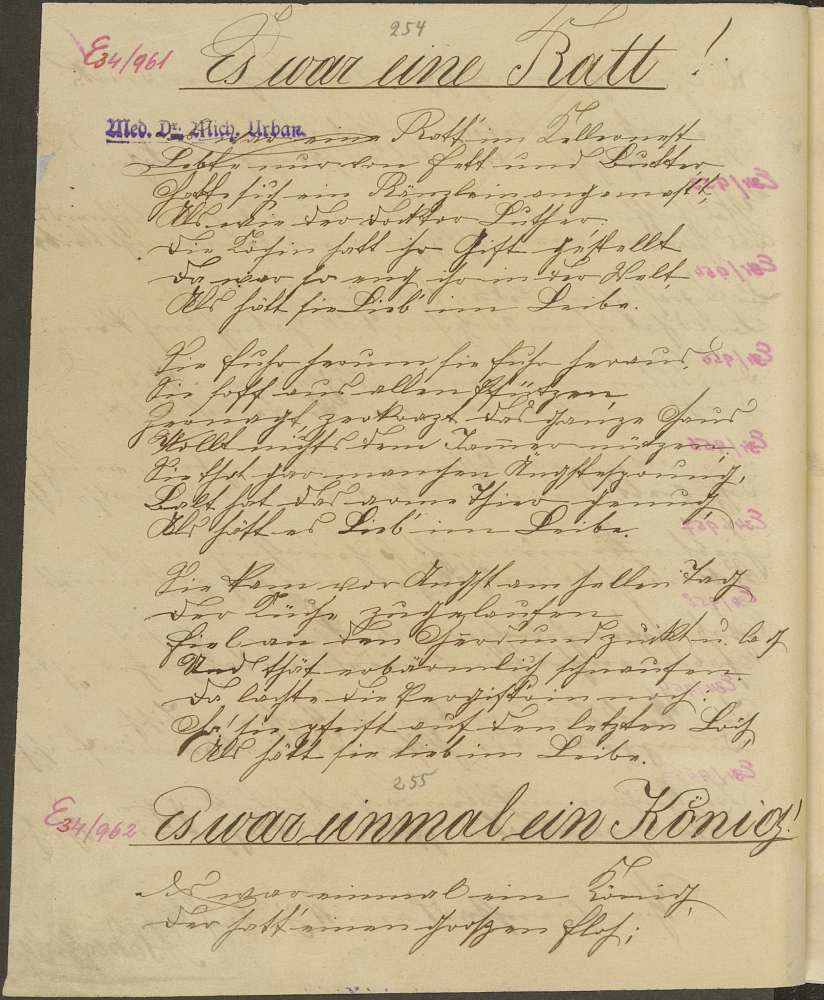 254
E34/961 Es war eine Ratt!
Med. Dr. Mich. Urban.
Es war eine Ratt' im Kellernest
Lebte nur von Fett und Butter
Hatte sich ein Ränzlein angemäst't,
Als wie der Docktor Luther.
Die Köchin hatt' ihr Gift gestellt
Da war so eng ihr in der Welt,
Als hätt sie Lieb' im Leibe.
Sie fuhr herum, sie fuhr heraus,
Sie soff aus allen Pfützen,
Zernagt, zerkrazt das ganze Haus
Wollt nichts dem Jam̄er nützen.
Sie that gar manchen Ängstesprung,
Bald hat das arme Thier genug,
Als hätt es Lieb' im Leibe.
Sie kam vor Angst am hellen Tag
Der Küche zugelaufen
Fiel an den Herd und zuckt u. lag
Und thät erbärmlich schnaufen.
Da lachte die Vergiftrin noch:
Ha! sie pfeift auf den letzten Loch,
Als hätt sie lieb im Leibe.
255
E34/962 Es war einmal ein König!
Es war einmal ein König,
Der hatt' einen großen Floh;